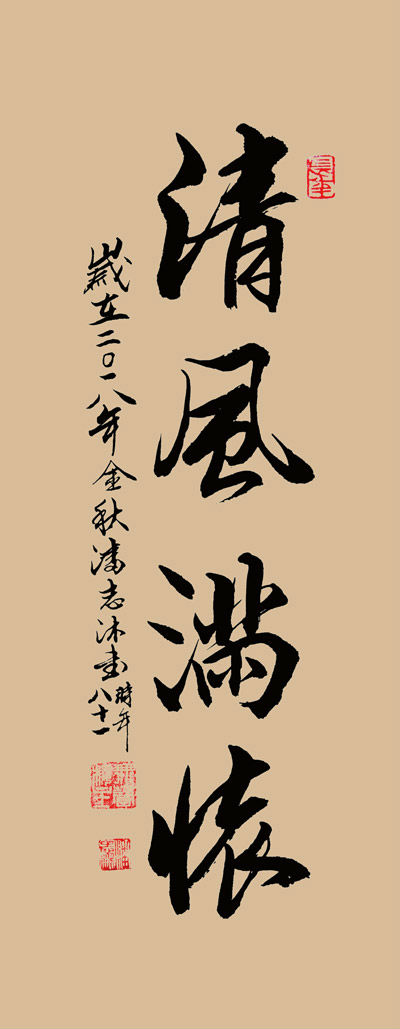 清風滿懷
歲在二〇一八年金秋潘志沐書時年八十一